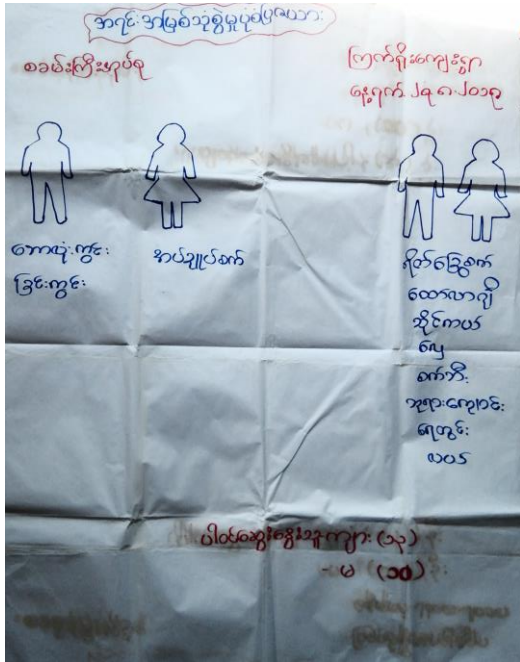 အရင်းအမြစ်သုံးစွဲမှုပုံစံပြဇယား
စခမ်းကြီးအုပ်စု
ကြက်ရိုးကျေးရွာ
နေ့ရက်
ဘောလုံးကွင်း
ခြင်းကွင်း
အပ်ချုပ်စက်
ရိတ်ခြွေစက်
ထော်လာဂျီ
ဆိုင်ကယ်
လှေ
စက်ဘီး
ဘုရားကျောင်း
ရေတွင်း
လယ်
ပါဝင်ဆွေးနွေးသူ ကျား (၁၃)
မ (၁၀)